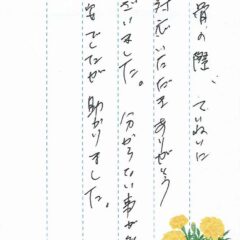 骨の際、ていねいに
対応いただきありがとう
ざいました。分からない事が
でしたが助かりました。